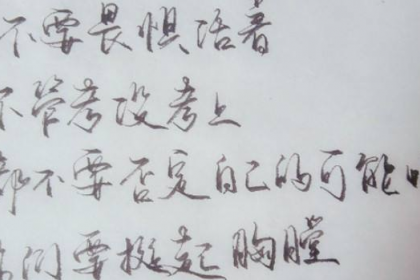 不要畏惧活着
不管考没考上
都不要否定自己的可能
们要挺起胸膛